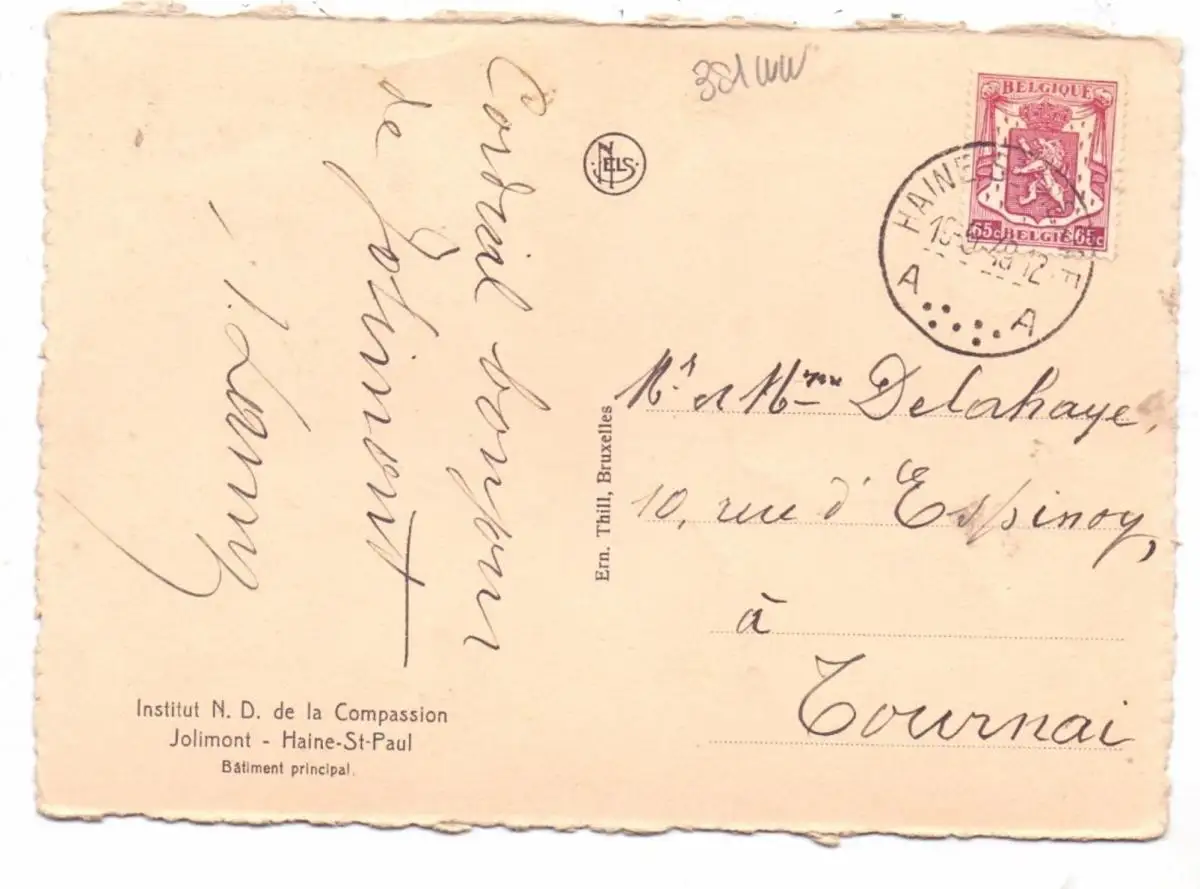 381
Cordial bonjour
de Jolimont
NELS
Ern. Thill, Bruxelles
BELGIQUE
65c BELGIE 65c
HAINE-S
A A
Mr et Mme Delahaye,
10, rue d'Espinoy,
à
Tournai
Institut N. D. de la Compassion
Jolimont - Haine-St-Paul
Bâtiment principal.